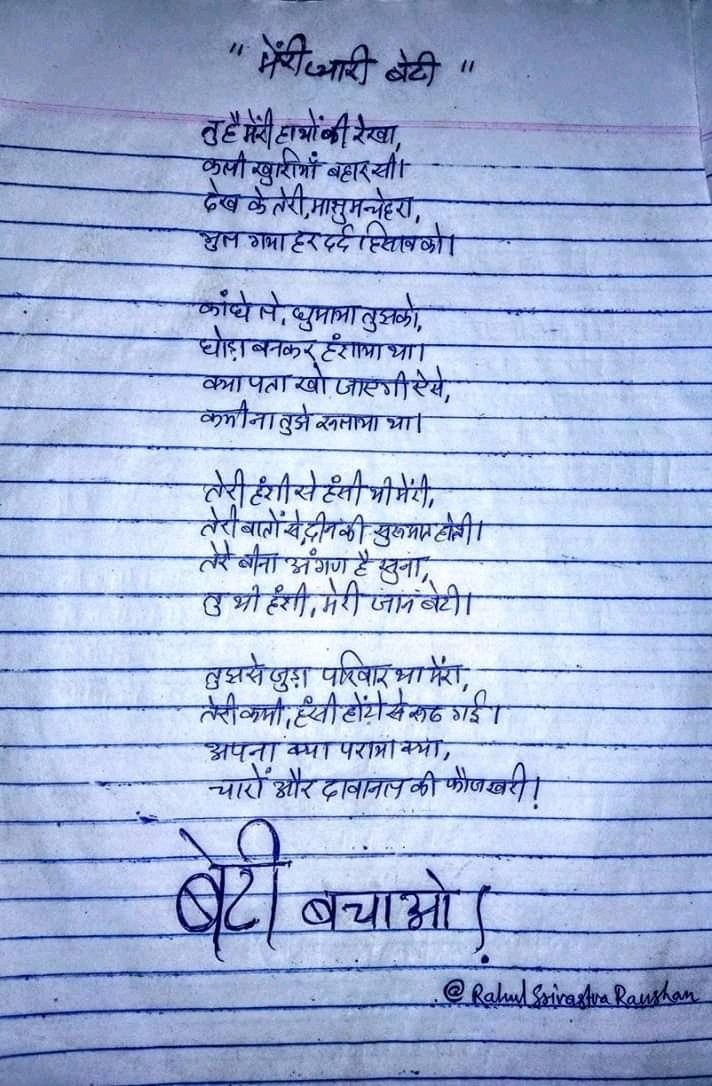 " मेंरी प्यारी बेटी "
तु है मेंरी हाथों की रेखा,
कली खुशीयाँ बहार सी।
देख के तेरी, मासुम चेहरा,
भुल गया हर दर्द हिसाब को।
कांधे ले, घुमाया तुझको,
घोड़ा बनकर हंसाया था।
क्या पता खो जाएगी ऐसे,
कभी ना तुझे रूलाया था।
तेरी हंसी से हंसी थी मेंरी,
तेरी बातों से, दीन की सुरूआत होती।
तेरे बीना अंगण है सुना,
तु थी हंसी, मेरी जान बेटी।
तुझसे जुड़ा परिवार था मेंरा,
तेरी कमी, हंसी होंटो से रूठ गई।
अपना क्या पराया क्या,
चारों और दावानल की फौज खरी!
बेटी बचाओ!
@ Rahul Srivastva Raushan